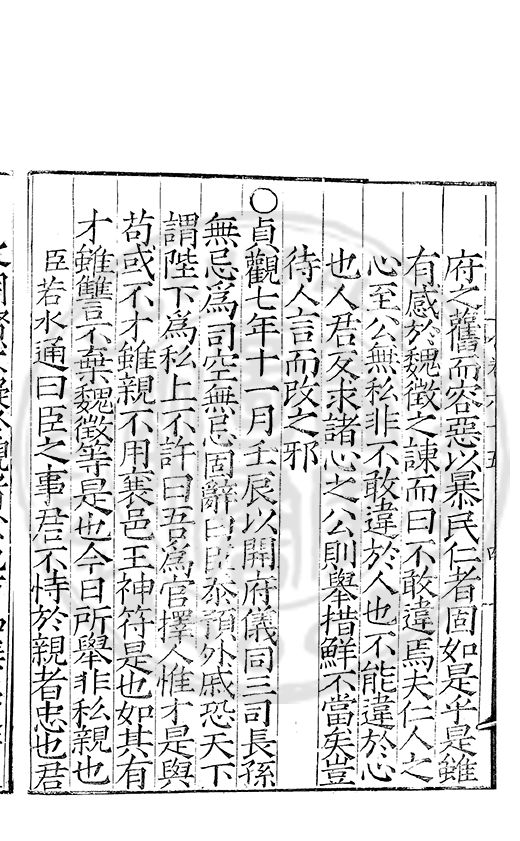 府之舊而容惡以暴民仁者固如是乎是雖
有感於魏徵之諫而曰不敢違焉夫仁人之
心至公無私非不敢違於人也不能違於心
也人君反求諸心之公則舉措鮮不當矣豈
待人言而改之邪
○貞觀七年十一月壬辰以開府儀同三司長孫
無忌爲司空無忌固辭曰臣忝預外戚恐天下
謂陛下爲私上不許曰吾爲官擇人惟才是與
苟或不才雖親不用襄邑王神符是也如其有
才雖讐不棄魏徵等是也今日所舉非私親也
臣若水通曰臣之事君不恃於親者忠也君